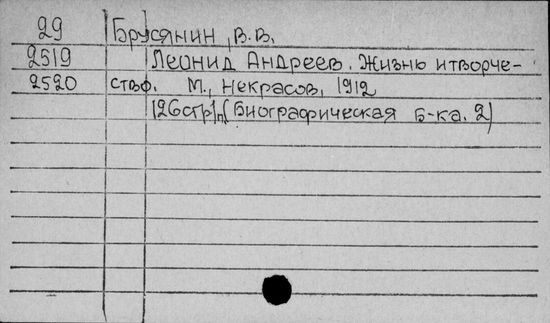 29 Брусянин, В.В.
2519 Леонид Андреев. Жизнь и творче-
2520 ство. М., Некрасов, 1912
126стр. (Биографическая б-ка. 2)